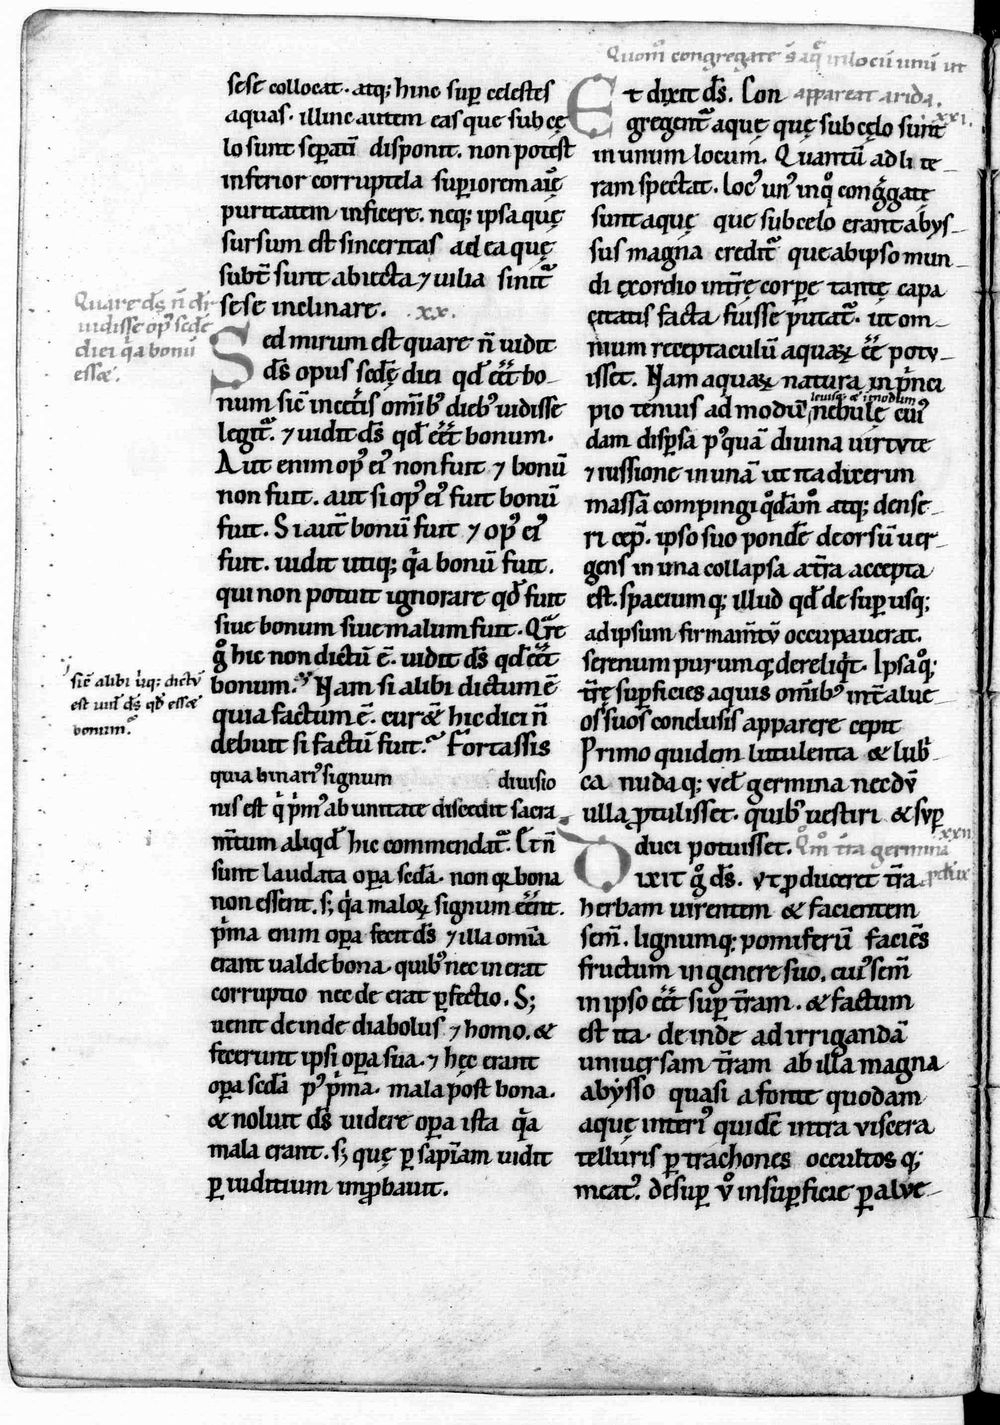 sese collocat. atq; hinc sup celestes
aquas. illinc autem eas que sub cę
lo sunt sepatī disponit. non potest
inferior corruptela supiorem aqę
puritatem inficere. neq; ipsa quę
sursum est sinceritas ad ea quę
subt̄ sunt abiecta ⁊ uilia sinit᷑
sese inclinare. .xx.
Quare ds̄ n̄ dr̄
uidisse op᷒ scdę
diei q̄a bonū
essæ.
Sed mirum est quare n̄ uidit
ds̄ opus scdę diei qd̄ eēt bo-
num sic̄ in cet̄is omīb᷒ dieb᷒ uidisse
legit᷑. ⁊ uidit ds̄ qd̄ eēt bonum.
Aut enim op᷒ ei᷒ non fuit ⁊ bonū
non fuit. aut si op᷒ ei᷒ fuit bonū
fuit. Si aut̄ bonū fuit ⁊ op᷒ ei᷒
fuit. uidit utiq; q̄a bonū fuit.
qui non potuit ignorare qd̄ fuit
siue bonum siue malum fuit. Qr̄e
g̊ hic non dictū ē. uidit ds̄ qd̄ eēt
bonum. Nam si alibi dictum ē
sic̄ alibi ubiq; dictū
est uidit ds̄ qd̄ essæ
bonum.
quia factum ē. cur & hic dici n̄
debuit si factū fuit. Fortassis
quia binari᷒ signum diuisio
nis est q̇ p̄m᷒ ab unitate discedit sacra
m̄tum aliqd̄ hic commendat᷑. Et n̄
sunt laudata opa scda. non qꝛ bona
non essent. s; q̄a maloꝝ signum eēnt.
p̄ma enim opa fecit ds̄ ⁊ illa om̄ia
erant ualde bona. quib᷒ nec inerat
corruptio nec deerat pfectio. S;
uenit deinde diabolus ⁊ homo. &
fecerunt ipsi opa sua. ⁊ hęc erant
opa scda p᷒ p̄ma. mala post bona.
& noluit ds̄ uidere opa ista q̄a
mala erant. s; quę p sapīam uidit
p iuditium improbauit.
Quom̄ congregate s̄ aq̄ in locū unū ut
appareat arida. .xxi.
Et dixit ds̄. Con
gregent᷑ aquę quę sub cęlo sunt
in unum locum. Quantū ad lite
ram spectat. loc᷒ un᷒ in q̊ congregatę
sunt aquę que sub celo erant abys-
sus magna credit᷑ que ab ipso mun-
di exordio int̄rę corpe tantę capa
citatis facta fuisse putat᷑. ut om-
nium receptaculū aquaꝝ eē poty-
isset. Nam aquaꝝ natura in p̄nci
pio tenuis ad modū nebulę cui᷒
dam dispsa p᷒quā diuina uirtute
⁊ iussione in unā ut ita dixerim
massā compingi q̊dam̊ atq; dense-
ri cep̄. ipso suo pondē deorsū uer-
gens in una collapsa at̄ra accepta
est. spacium q; illud qd̄ desup usq;
ad ipsum firmam̄tū occupauerat.
serenum purum q; dereliq̇t. Ipsa q̊;
t̄rę supficies aquis omīb᷒ int̄ alue
os suos conclusis apparere cepit
Primo quidem lutulenta & lub᷑
ca nuda q; vel̄ germina necdū
ulla ptulisset. quib᷒ uestiri & sup
duci potuisset. Qm̊ t̄ra germina
.xxii.
Dixit g̊ ds̄. vt produceret t̄ra
herbam uirentem & facientem
sem̄. lignumq; pomiferū faciēs
fructum in genere suo. cui᷒ sem̄
in ipso eēt sup t̄ram. & factum
est ita. deinde ad irrigandā
uniuersam t̄ram ab illa magna
abysso quasi a fonte quodam
aquę interi᷒ quidē intra viscera
telluris p trachones occultos q;
meat᷒. desup v̊ in supficie p alue-